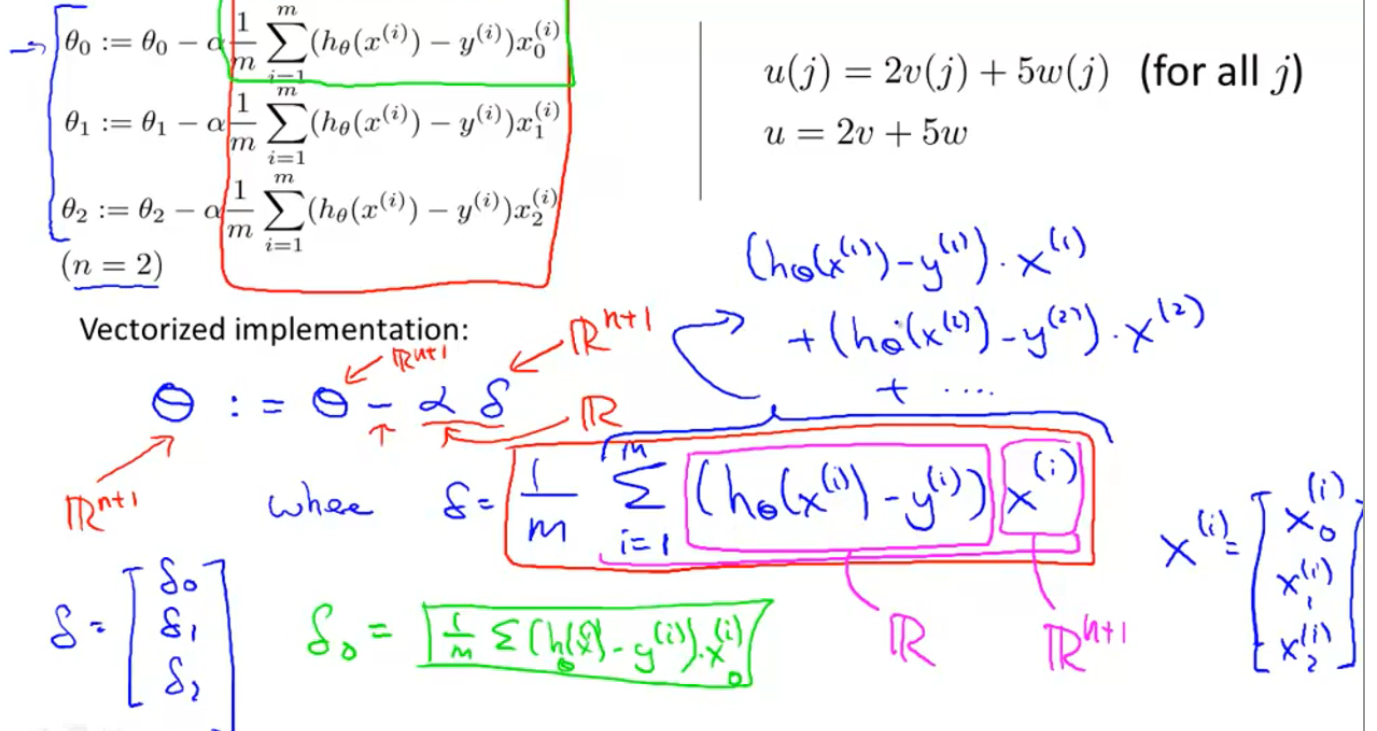 θ₀ := θ₀ − α 1/m ∑ᵢ₌₁ᵐ (h_θ(x⁽ⁱ⁾) − y⁽ⁱ⁾)x₀⁽ⁱ⁾
θ₁ := θ₁ − α 1/m ∑ᵢ₌₁ᵐ (h_θ(x⁽ⁱ⁾) − y⁽ⁱ⁾)x₁⁽ⁱ⁾
θ₂ := θ₂ − α 1/m ∑ᵢ₌₁ᵐ (h_θ(x⁽ⁱ⁾) − y⁽ⁱ⁾)x₂⁽ⁱ⁾
(n = 2)
u(j) = 2v(j) + 5w(j) (for all j)
u = 2v + 5w
(h_θ(x⁽¹⁾) − y⁽¹⁾) · x⁽¹⁾
+ (h_θ(x⁽²⁾) − y⁽²⁾) · x⁽²⁾
+ ....
Vectorized implementation:
ℝⁿ⁺¹
ℝⁿ⁺¹
θ := θ − α δ
ℝ
ℝⁿ⁺¹
whee δ = 1/m ∑ᵢ₌₁ᵐ (h_θ(x⁽ⁱ⁾) − y⁽ⁱ⁾) x⁽ⁱ⁾
x⁽ⁱ⁾ = [x₀⁽ⁱ⁾
x₁⁽ⁱ⁾
x₂⁽ⁱ⁾]
δ = [δ₀
δ₁
δ₂]
δ₀ = 1/m Σ (h_θ(x) − y⁽ⁱ⁾) · x₀⁽ⁱ⁾
ℝ
ℝⁿ⁺¹